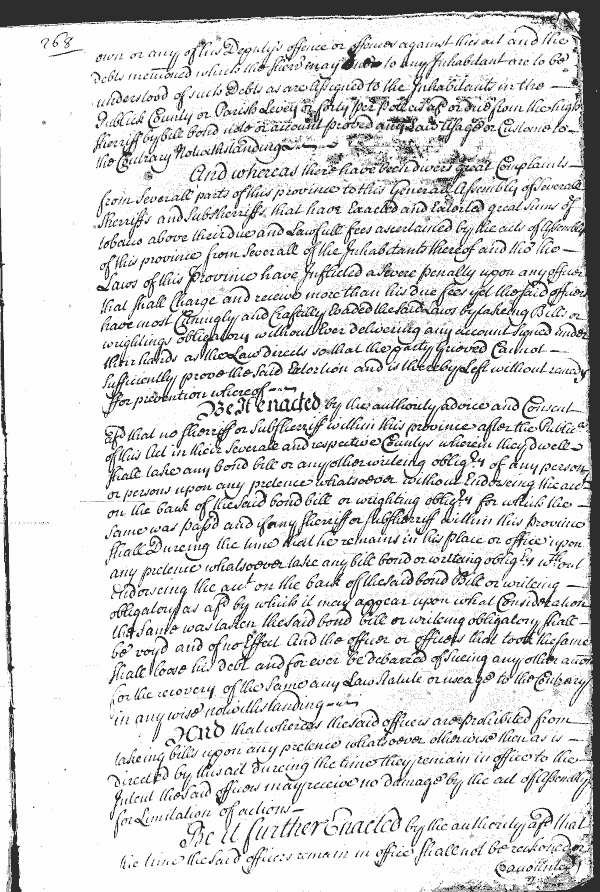 268
own or any of his Deputys offence or offences against this act and the
debts mentioned which the Sherr may owe to any Inhabitant are to be
understood of such Debts as are assigned to the Inhabitants in the
Publick County or Parish Levey or forty per poll as afd or due from the high
Sherriff by bill bond note or account proved any Law Usage or Custome to
the Contrary Notwithstanding
And whereas there have been divers great Complaints
from Severall parts of this province to this Generall Assembly of severall
Sherriffs and Subsherriffs, that have Exacted and Extorted great sums of
tobacco above their due and Lawfull fees ascertained by the acts of Assembly
of this province from Severall of the Inhabitants thereof and tho the
Laws of this Province have Inflicted a Severe penalty upon any officer
that shall Charge and receive more than his due fees yet the said officers
have most Cunningly and Craftily Evaded the said Laws by takeing Bills or
wrightings obligatory without Ever delivering any account Signed under
their hands as the Law directs so that the party Grieved Cannot
Sufficiently prove the said Extortion and is thereby Left without remedy
ffor prevention whereof
Be it enacted by the authority advice and Consent
afd that no Sherriff or Subsherriff within this province after the Public
of this Act in their Severall and respective Countys wherein they dwell
shall take any bond bill or any other writeing oblig:ry of any person
or persons upon any pretence whatsoever without Endorseing the acc
on the back of the said bond bill or wrighting oblig:ry for which the
same was passd and if any Sherriff or Subsherriff within this Province
shall Dureing the time that he remains in his place or office upon
any pretence whatsoever take any bill bond or writeing oblig:ry wthout
endorseing the acct on the back of the said bond Bill or writeing
obligatory as afd by which it may appear upon what Consideration
the Same was taken the said bond bill or writeing obligatory shall
be voyd and of no Effect And the officer or officers that took the same
shall loose his debt and for ever be debarred of sueing any other action
for the recovery of the same any Law Statute or useage to the Contrary
in any wise notwithstanding
And that whereas the said officers are prohibited from
takeing bills upon any pretence whatsoever otherwise then as is
directed by this act dureing the time they remain in office to the
Intent the said officers may receive no damage by the act of Assembly
for Limitation of actions
Be it further Enacted by the authority afd that
the time the said officers remain in office shall not be reckoned or